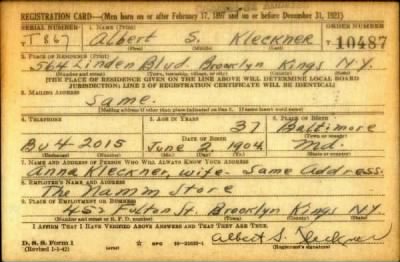 REGISTRATION CARD—(Men born on or after February 17, 1897 and on or before December 31, 1921)
SERIAL NUMBER
1. NAME (Print)
ORDER NUMBER
T 867
Albert S. Kleckner
10487
(First) (Middle) (Last)
2. PLACE OF RESIDENCE (Print)
564 Linden Blvd Brooklyn Kings N.Y.
(Number and street) (Town, township, village, or city) (County) (State)
[THE PLACE OF RESIDENCE GIVEN ON THE LINE ABOVE WILL DETERMINE LOCAL BOARD
JURISDICTION; LINE 2 OF REGISTRATION CERTIFICATE WILL BE IDENTICAL]
3. MAILING ADDRESS
Same.
[Mailing address if other than place indicated on line 2. If same insert word same]
4. TELEPHONE
5. AGE IN YEARS
6. PLACE OF BIRTH
37
Baltimore
DATE OF BIRTH
(Town or county)
BU 4-2015
June 2, 1904
Md.
(Mo.) (Day) (Yr.)
(State or country)
7. NAME AND ADDRESS OF PERSON WHO WILL ALWAYS KNOW YOUR ADDRESS
Anna Kleckner, wife- Same Address.
8. EMPLOYER'S NAME AND ADDRESS
The Namm Store
9. PLACE OF EMPLOYMENT OR BUSINESS
452 Fulton St. Brooklyn Kings N.Y.
(Number and street or R. F. D. number) (Town) (County) (State)
I AFFIRM THAT I HAVE VERIFIED ABOVE ANSWERS AND THAT THEY ARE TRUE.
D. S. S. Form 1
(Revised 1-1-42)
GPO
Albert S. Kleckner
(Registrant's signature)